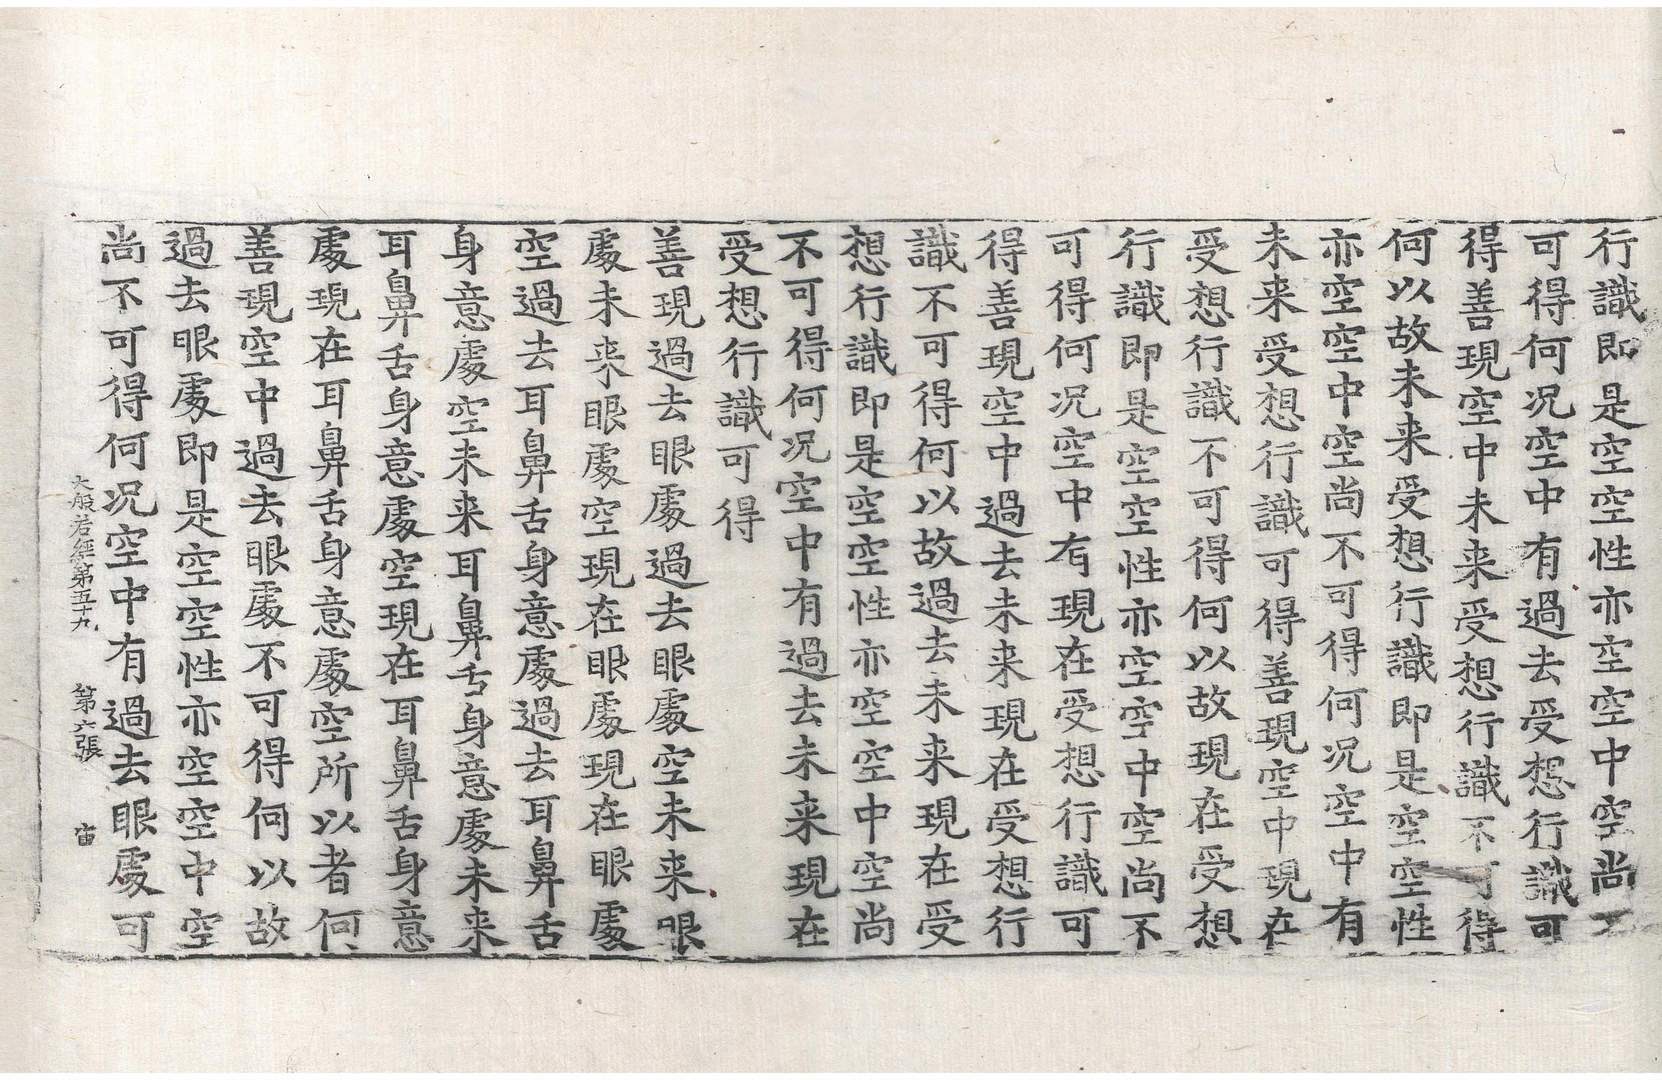 行識即是空空性亦空空中空尚不
可得何况空中有過去受想行識可
得善現空中未来受想行識不可得
何以故未来受想行識即是空空性
亦空空中空尚不可得何况空中有
未来受想行識可得善現空中現在
受想行識不可得何以故現在受想
行識即是空空性亦空空中空尚不
可得何况空中有現在受想行識可
得善現空中過去未来現在受想行
識不可得何以故過去未来現在受
想行識即是空空性亦空空中空尚
不可得何况空中有過去未来現在
受想行識可得
善現過去眼處過去眼處空未来眼
處未来眼處空現在眼處現在眼處
空過去耳鼻舌身意處過去耳鼻舌
身意處空未来耳鼻舌身意處未来
耳鼻舌身意處空現在耳鼻舌身意
處現在耳鼻舌身意處空所以者何
善現空中過去眼處不可得何以故
過去眼處即是空空性亦空空中空
尚不可得何况空中有過去眼處可
大般若經第五十九 第六張 宙